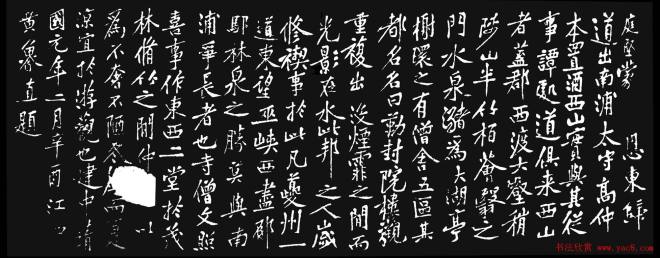 庭堅蒙 恩東歸
道出南浦太守高仲
本置酒西山實與其從
事譚處道俱來西山
者蓋郡西渡大壑稍
陟山半竹柏薈翳之
門水泉瀦為大湖亭
榭環之有僧舍五區其
都名名曰勒封院樓觀
重複出沒煙霏之間而
光影在水此邦之人歲
修禊事於此凡夔州一
道東望巫峽西盡郁
鄢林泉之勝莫與南
浦爭長者也寺僧文照
喜事作東西二堂於茂
林脩竹之間仲 以
為不奢不陋冬 而夏
涼宜於游觀也建中靖
國元年二月辛酉江
黃魯直題
书法欣赏 www.yac8.com